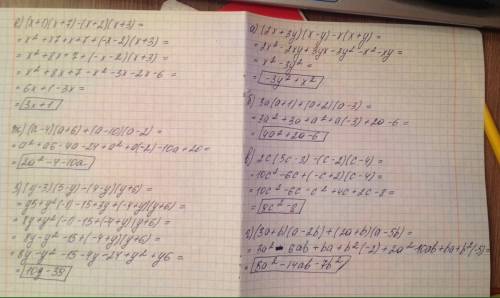 е) (x+1)(x+7)-(x+2)(x+3)=
= x²+x7+x+7+(-x-2)(x+3)=
= x²+8x+7+(-x-2)(x+3)=
= x²+8x+7-x²-3x-2x-6=
= 6x+1-3x=
= 3x+1
ж) (a-4)(a+6)+(a-10)(a-2)=
= a²+a6-4a-24+a²+a(-2)-10a+20=
= 2a²-4-10a
з) (y-3)(5-y)-(4-y)(y+6)=
= y5+y²(-1)-15+3y+(-4+y)(y+6)=
= 8y+y²(-1)-15+(-4+y)(y+6)=
= 8y-y²-15+(-4+y)(y+6)=
= 8y-y²-15-4y-24+y²+y6=
= 10y-39
а) (2x+3y)(x-y)-x(x+y)=
= 2x²-2xy+3yx-3y²-x²-xy=
= x²-3y²=
= -3y²+x²
б) 3a(a+1)+(a+2)(a-3)=
= 3a²+3a+a²+a(-3)+2a-6=
= 4a²+2a-6
в) 2c(5c-3)-(c-2)(c-4)=
= 10c²-6c+(-c+2)(c-4)=
= 10c²-6c-c²+4c+2c-8=
= 9c²-8
г) (3a+b)(a-2b)+(2a+b)(a-5b)=
= 3a²-6ab+ba+b²(-2)+2a²-10ab+ba+b²(-5)=
= 5a²-14ab-7b²